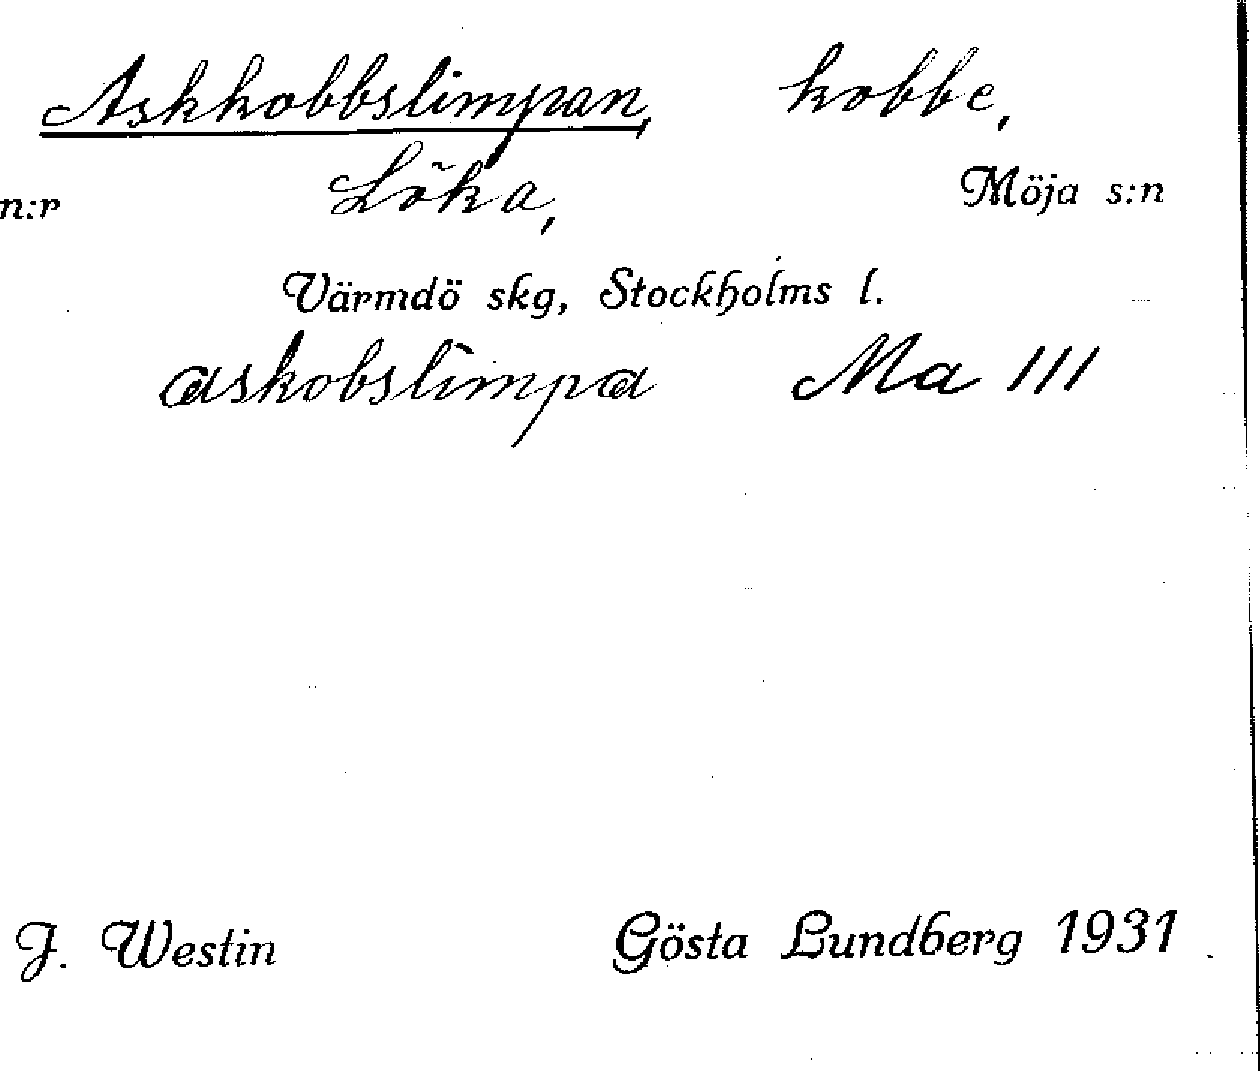 Askkobbslimpan, kobbe,
n:r Löka, Möja s:n
Värmdö skg, Stockholms l.
askobslimpa Ma III
J. Westin Gösta Lundberg 1931